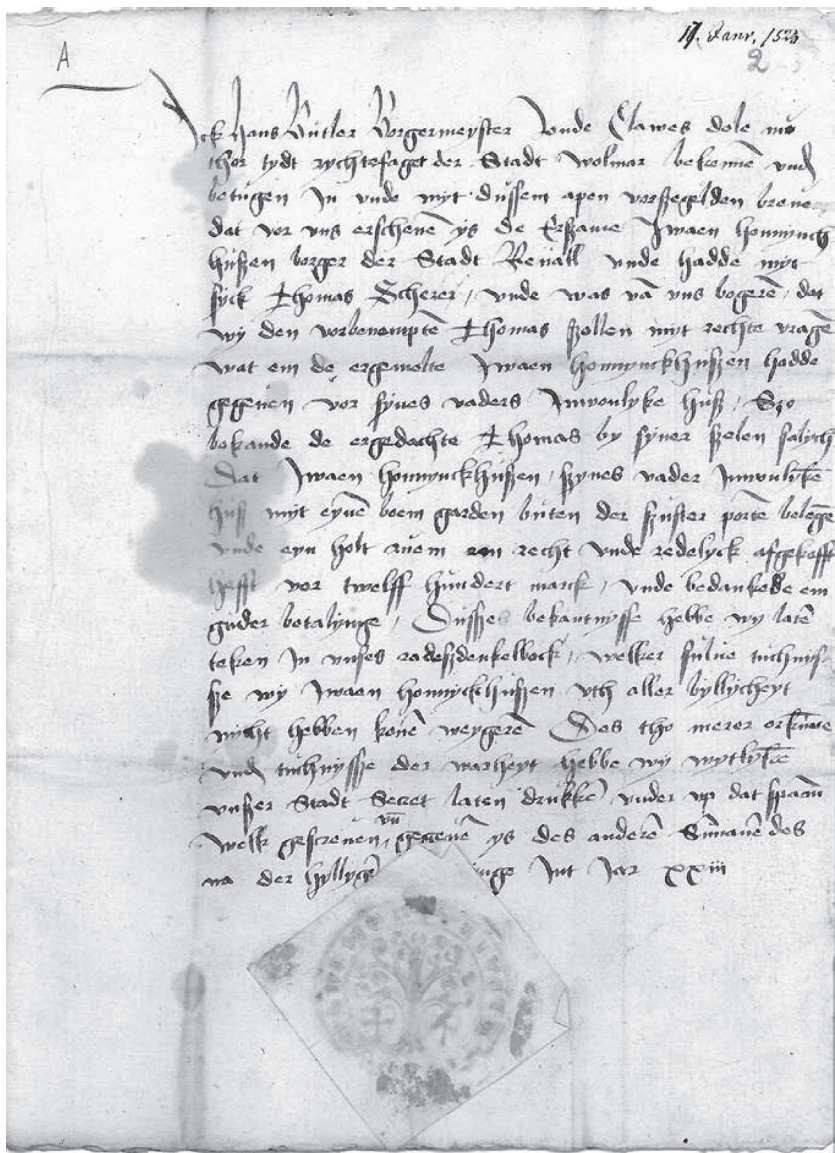 17. Janr. 1523
2
A
Ick Hans Butler Borgermeyster Vnde Clawes dole nu
thor tydt rychtefaget der Stadt wolmar bekennē vnd
betugen In vnde myt dussem apen vorsegelden breue
dat vor vns erschenē ys de Erszame Iwaen honnynck
huszen borger der Stadt Reuall vnde hadde myt
syck Thomas Scherer, vnde was vā vns begerē, dat
wy den vorbenomptē Thomas szollen myt rechte vragē
wat em de ergemelte Iwaen honnynckhuszen hadde
gegeuen vor synes vaders Inwonlyke husz, Szo
bekande de ergedachte Thomas by syner szelen salych
Dat Iwaen honnynckhuszen, szynes vader Inwonlykē
husz myt eynē boem garden buten der portē belegē
vnde eyn holt ruem recht vnde redelyck afgekofft
hefft vor twelff hundert marck, vnde bedankede em
guder betalynge, Dussses bekantnysse hebbe wy latē
teken In vnses radeszdenkelbock, welker sulue tuchnis
sze wy Iwaen honnyckhuszen vth aller byllycheyt
nycht hebben konē weygerē Des tho merer
vnd tuchnysse der warheyt hebbe wy wytlykē
vnszer Stadt Secret laten druckē vnder vp dat spacīū
welk gescreuen vn̄ gegeuē ys des anderē des
na der hyllygē Int Jar xxiii